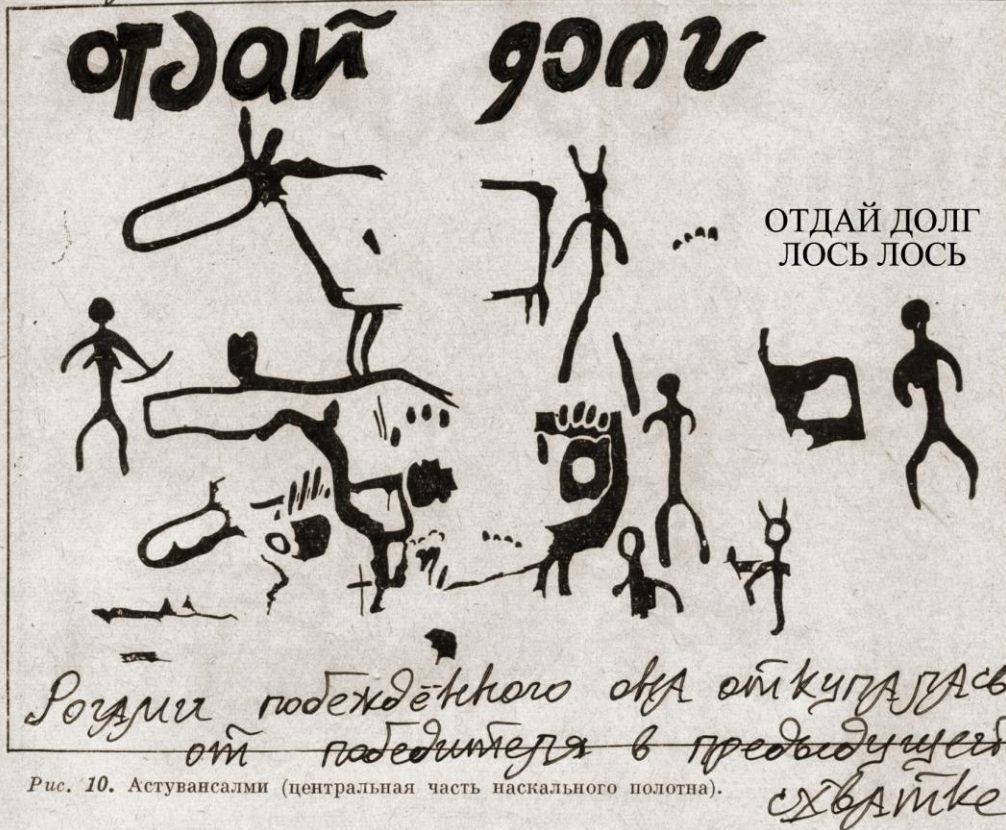 отдай долг
ОТДАЙ ДОЛГ
ЛОСЬ ЛОСЬ
Рогами побеждённого она откупалась
от победителя в предыдущей
схватке
Рис. 10. Астувансалми (центральная часть наскального полотна).